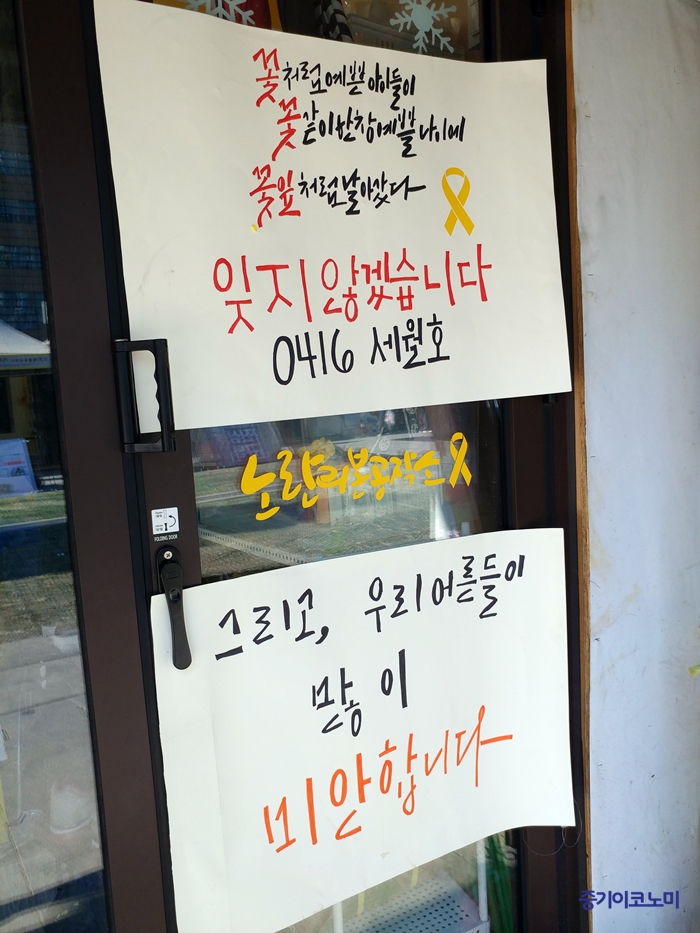 꽃처럼 예쁜 아이들이
꽃같이 한창 예쁠 나이에
꽃잎처럼 날아갔다
잊지 않겠습니다
0416 세월호
노란리본공작소
FOLDING DOOR
그리고, 우리 어른들이
많이
미안합니다
중기이코노미